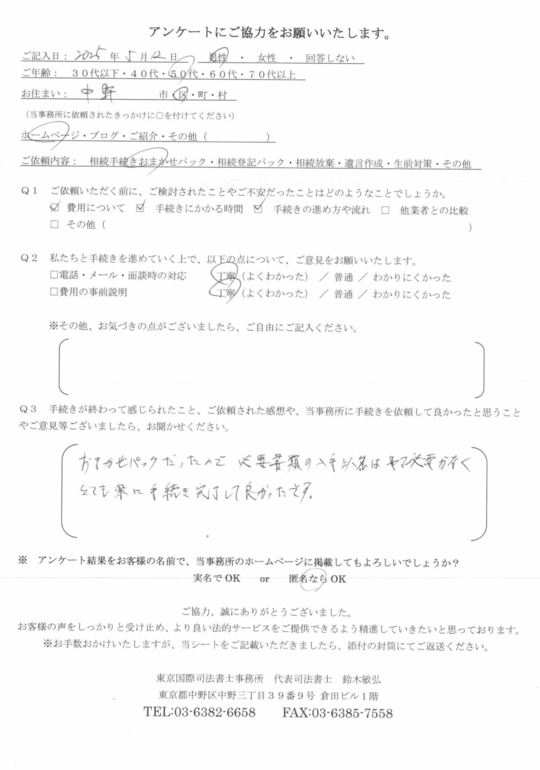 アンケートにご協力をお願いいたします。
ご記入日： 2025 年 5 月 12 日　男性 ・ 女性 ・ 回答しない
ご年齢： 30代以下・40代・50代・60代・70代以上
お住まい： 中野　市・区・町・村
（当事務所に依頼されたきっかけに○を付けてください）
ホームページ・ブログ・ご紹介・その他（　　　　）
ご依頼内容： 相続手続きおまかせパック・相続登記パック・相続放棄・遺言作成・生前対策・その他
Q1　ご依頼いただく前に、ご検討されたことやご不安だったことはどのようなことでしょうか。
☑ 費用について ☑ 手続きにかかる時間 ☑ 手続きの進め方や流れ □ 他業者との比較
□ その他（　　　　）
Q2　私たちと手続きを進めていく上で、以下の点について、ご意見をお願いいたします。
□電話・メール・面談時の対応　丁寧（よくわかった） ／ 普通 ／ わかりにくかった
□費用の事前説明　丁寧（よくわかった） ／ 普通 ／ わかりにくかった
※その他、お気づきの点がございましたら、ご自由にご記入ください。
Q3　手続きが終わって感じられたこと、ご依頼された感想や、当事務所に手続きを依頼して良かったと思うこと
やご意見等ございましたら、お聞かせください。
おまかせパックだったので 必要書類の入手以外は
とても楽に手続き完了して良かったです。
※ アンケート結果をお客様の名前で、当事務所のホームページに掲載してもよろしいでしょうか？
実名でOK　or　匿名ならOK
ご協力、誠にありがとうございました。
お客様の声をしっかりと受け止め、より良い法的サービスをご提供できるよう精進していきたいと思っております。
※お手数おかけいたしますが、当シートをご記載いただきましたら、添付の封筒にてご返送ください。
東京国際司法書士事務所　代表司法書士　鈴木敏弘
東京都中野区中野三丁目39番9号 倉田ビル1階
TEL:03-6382-6658　FAX:03-6385-7558